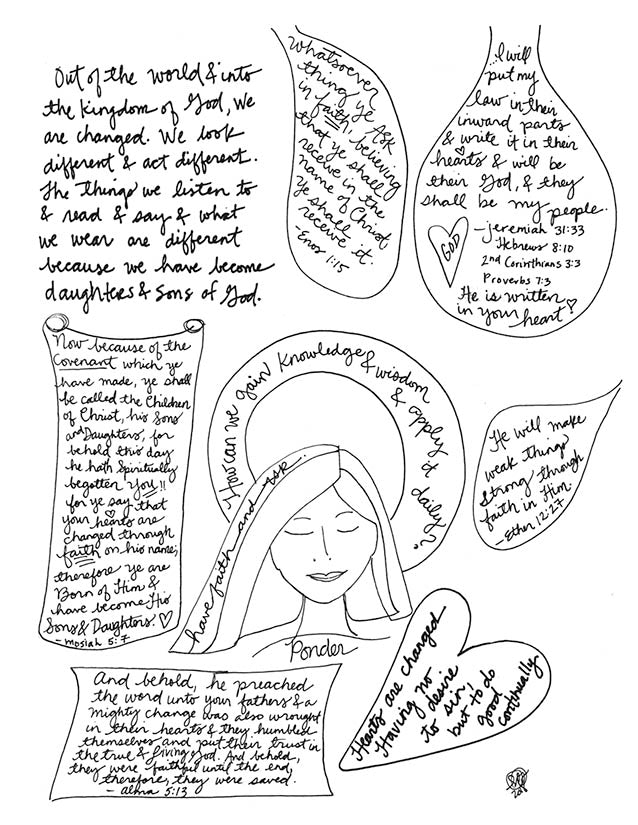 Out of the world & into
the kingdom of God, we
are changed. We look
different & act different.
The things we listen to
& read & say & what
we wear are different
because we have become
daughters & sons of God.
Whatsoever
thing ye ask
in faith, believing
that ye shall
receive in the
name of Christ,
ye shall
receive it.
-Enos 1:15
...I will
put my
law in their
inward parts
& write it in their
hearts & will be
their God, & they
shall be my people.
-Jeremiah 31:33
Hebrews 8:10
2nd Corinthians 3:3
Proverbs 7:3
GOD
He is written
in your heart!
Now because of the
Covenant which ye
have made, ye shall
be called the Children
of Christ, his Sons
and Daughters, for
behold this day
he hath Spiritually
begotten you!!
for ye say that
your hearts are
changed through
faith on his name;
therefore ye are
Born of Him &
have become His
Sons & Daughters.
- Mosiah 5:7
How can we gain knowledge & wisdom & apply it daily?
have faith and ask...
Ponder
He will make
weak things
Strong through
faith in Him.
-Ether 12:27
Hearts are changed
Having no
desire
to sin,
but to do
good
continually
And behold, he preached
the word unto your fathers & a
mighty change was also wrought
in their hearts & they humbled
themselves and put their trust in
the true & living God. And behold,
they were faithful until the end,
therefore, they were saved.
- Alma 5:13